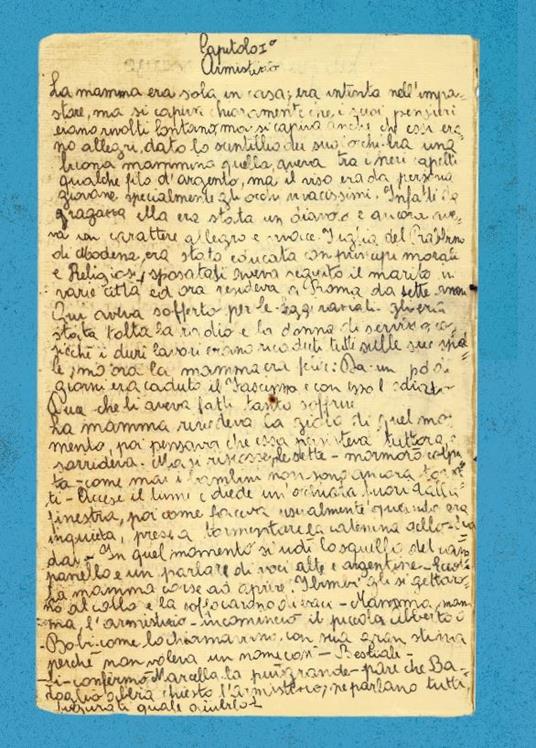 Capitolo I°
Armistizio
La mamma era sola in casa; era intenta nell'impa-
stare, ma si capiva chiaramente che i suoi pensieri
erano rivolti lontano, ma si capiva anche che essi era-
no allegri, dato lo scintillio dei suoi occhi. Era una
buona mammina quella, aveva tra i neri capelli
qualche filo d'argento, ma il viso era da persona
giovane specialmente gli occhi vivacissimi. Infatti da
ragazza ella era stata un diavolo e ancora ave-
va un carattere allegro e vivace. Figlia del Rabbino
di Modena, era stata educata con principi morali
e Religiosi; sposatasi aveva seguito il marito in
varie città ed ora risiedeva a Roma da sette anni
Qui aveva sofferto per le leggi razziali: gli era
stata tolta la radio e la donna di servizio co-
sicchè i duri lavori erano ricaduti tutti sulle sue spal-
le; ma ora la mamma era felice: Da un po' di
giorni era caduto il Fascismo e con esso l'odiato
Duce che li aveva fatti tanto soffrire
La mamma rivedeva la gioia di quel mo-
mento, poi pensava che essa persisteva tuttora e
sorrideva. Ma si riscosse, le sette - mormorò
ta - come mai i bambini non sono ancora torna-
ti - Accese il lume e diede un'occhiata fuori dalla
finestra, poi come faceva usualmente quando era
inquieta, prese a tormentare la catenina dello
dai - In quel momento si udì lo squillo del cam-
panello e un parlare di voci alte e argentine - Eccoli
La mamma corse ad aprire. I bimbi gli si gettaro-
no al collo e la soffocarono di baci - Mamma, mam-
ma, l'armistizio - incominciò il piccolo Alberto o
Bobi come lo chiamavano con sua gran stizza
perchè non voleva un nome così - Bestiale -
- Si - confermò Marcella la più grande - pare che Ba-
doglio abbia chiesto l'armistizio; ne parlano tutti,
figurati quale